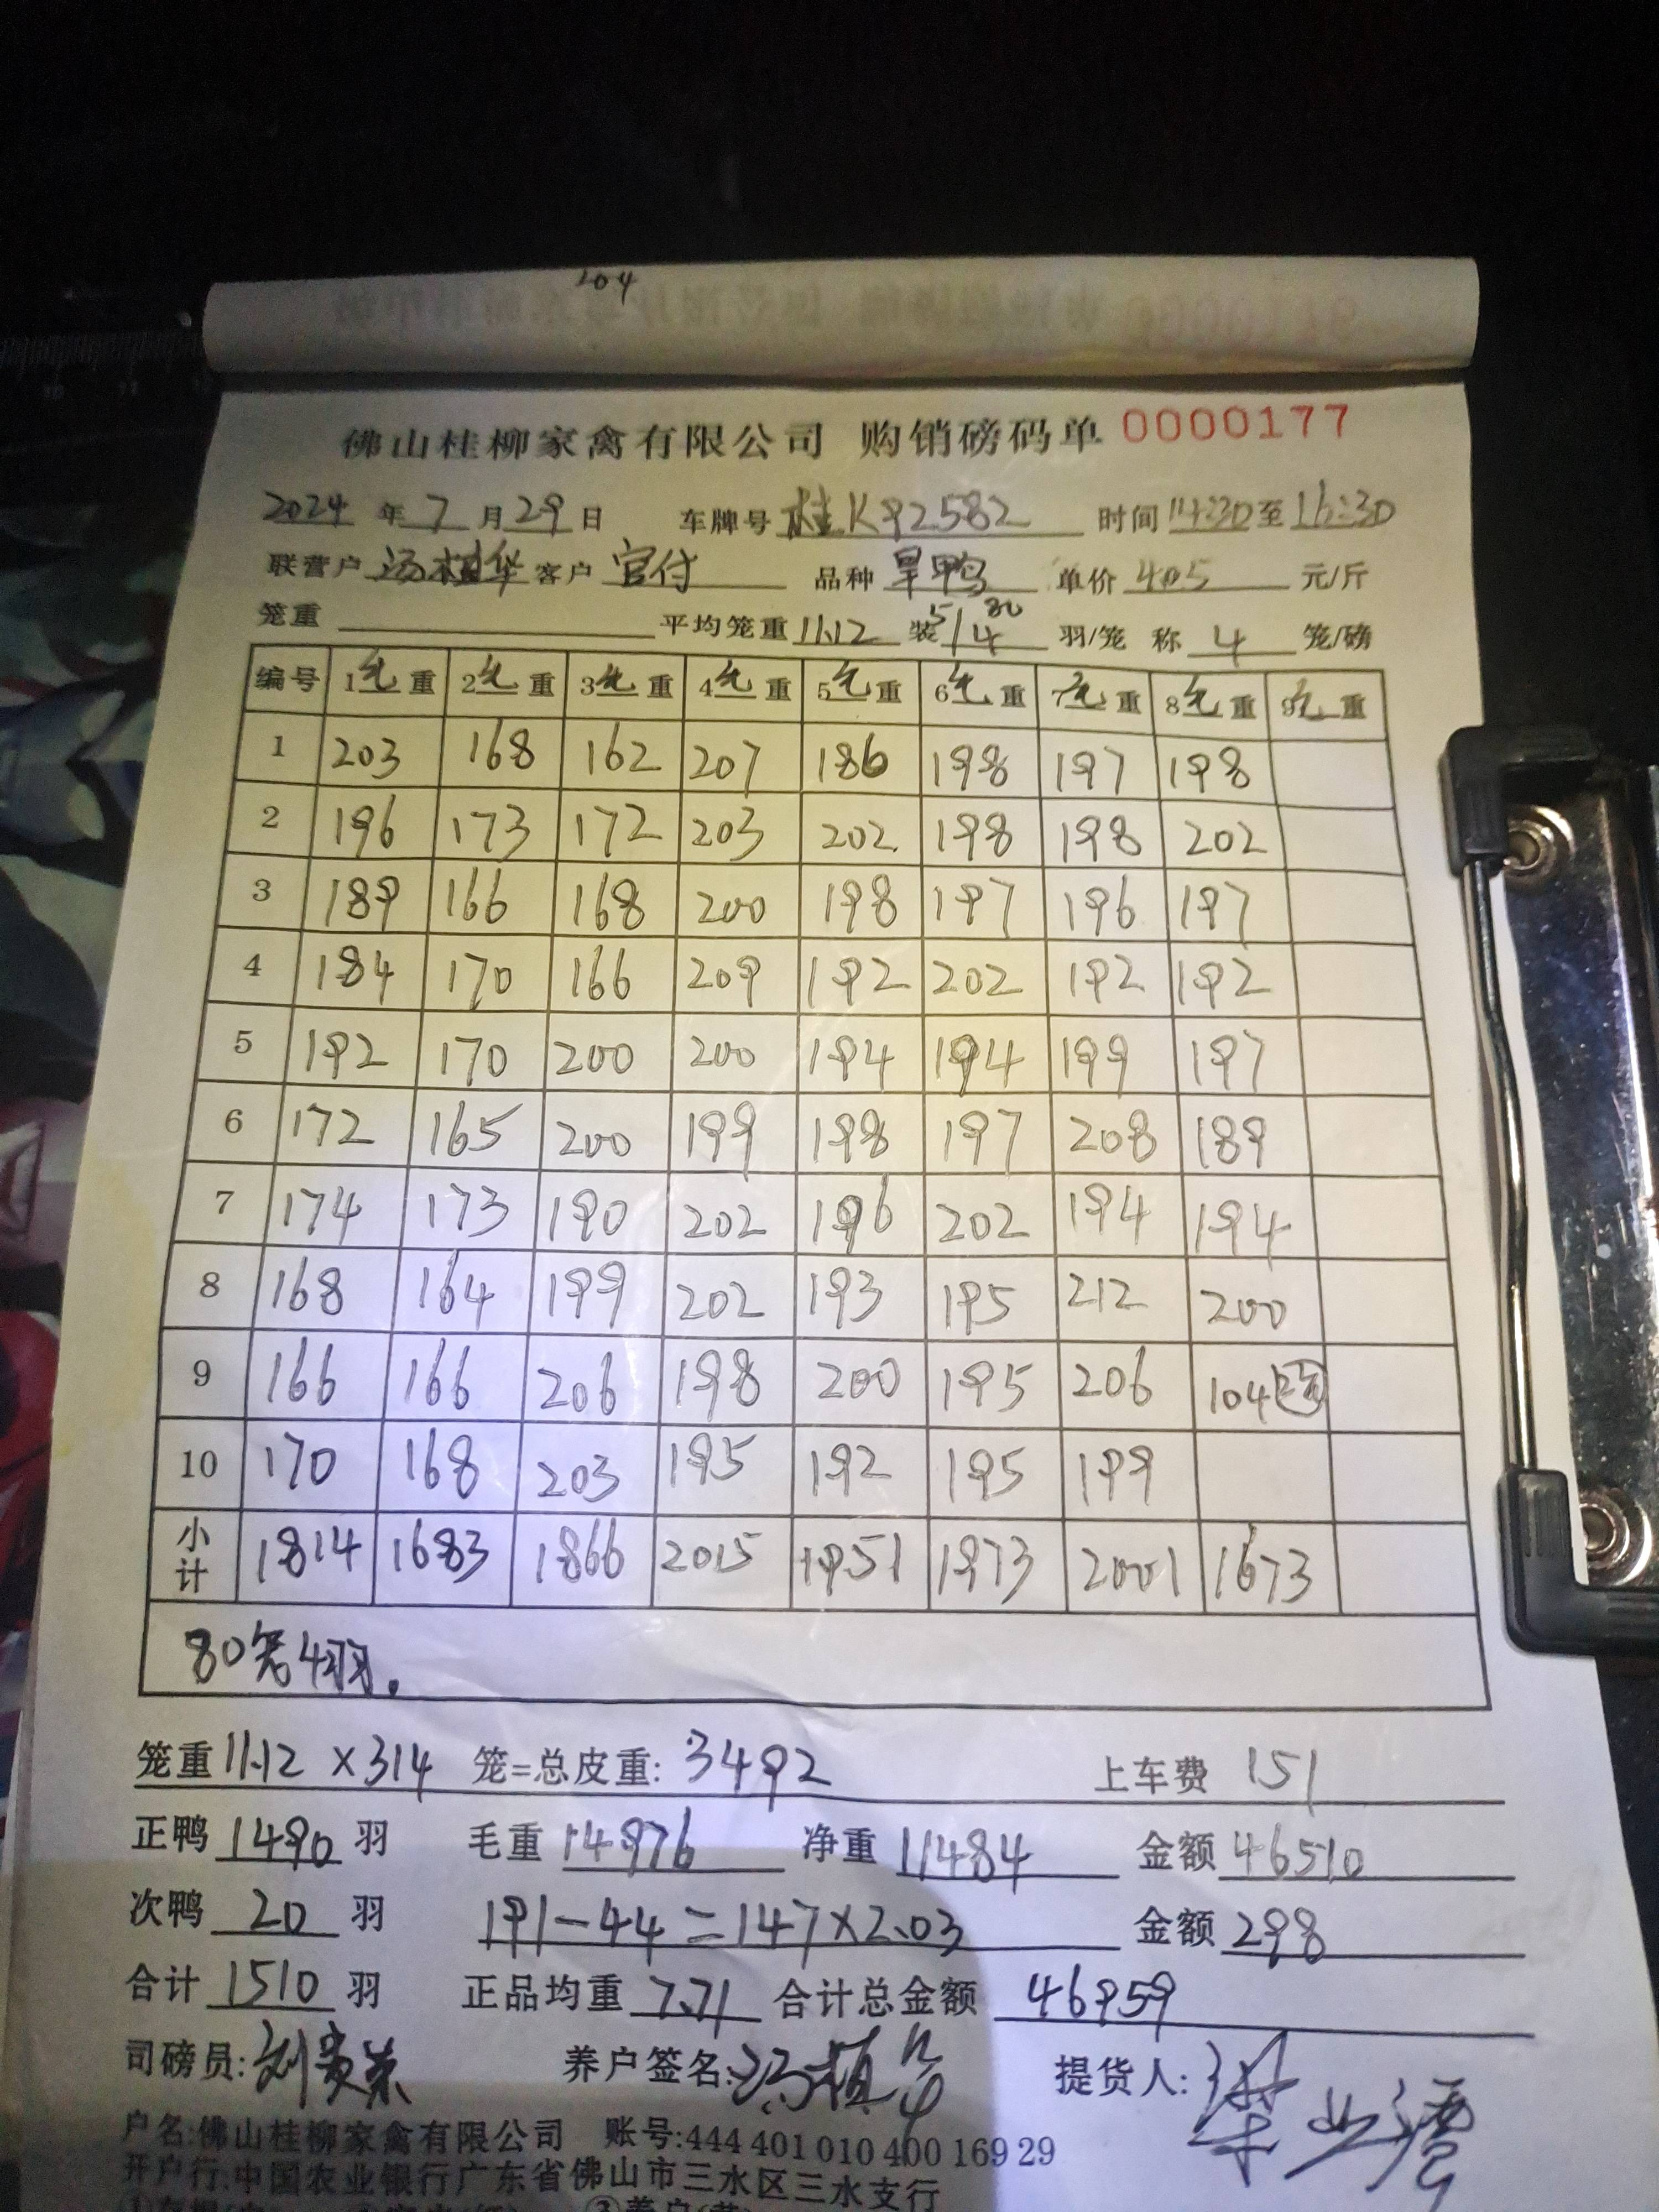 204
佛山桂柳家禽有限公司 购销磅码单 0000177
2024 年 7 月 29 日 车牌号 桂K92582 时间 14:30 至 16:30
联营户 汤植华 客户 官付 品种 旱鸭 单价 4.05 元/斤
笼重 平均笼重 11.12 装 5/4 80 羽/笼 称 4 笼/磅
编号 1毛重 2毛重 3毛重 4毛重 5毛重 6毛重 7毛重 8毛重 9毛重
1 203 168 162 207 186 198 197 198
2 196 173 172 203 202 198 198 202
3 189 166 168 200 198 197 196 197
4 184 170 166 209 192 202 192 192
5 192 170 200 200 194 194 199 197
6 172 165 200 199 198 197 208 189
7 174 173 190 202 196 202 194 194
8 168 164 199 202 193 195 212 200
9 166 166 206 198 200 195 206 104
10 170 168 203 195 192 195 199
小计 1814 1683 1866 2015 1951 1973 2001 1673
80笼4羽.
笼重 11.12 ×314 笼=总皮重: 3492 上车费 151
正鸭 1490 羽 毛重 14976 净重 11484 金额 46510
次鸭 20 羽 191-44=147×2.03 金额 298
合计 1510 羽 正品均重 7.71 合计总金额 46959
司磅员: 刘贵荣 养户签名: 汤植华 提货人:
户名:佛山桂柳家禽有限公司 账号:444 401 010 400 169 29
开户行:中国农业银行广东省佛山市三水区三水支行